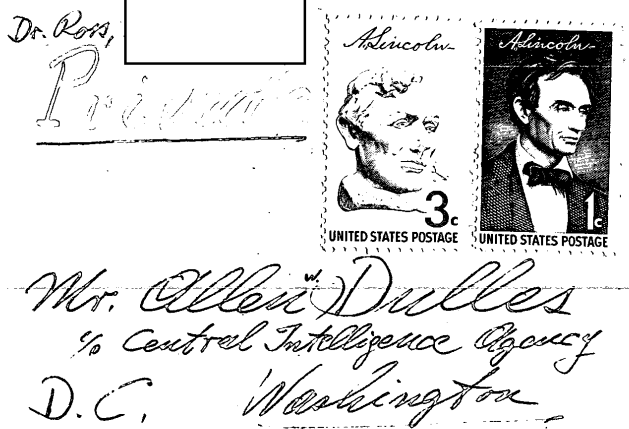 Dr. Ross,
Private
A. Lincoln
3c
UNITED STATES POSTAGE
A. Lincoln
1c
UNITED STATES POSTAGE
Mr. Allen W. Dulles
c/o Central Intelligence Agency
D.C. Washington